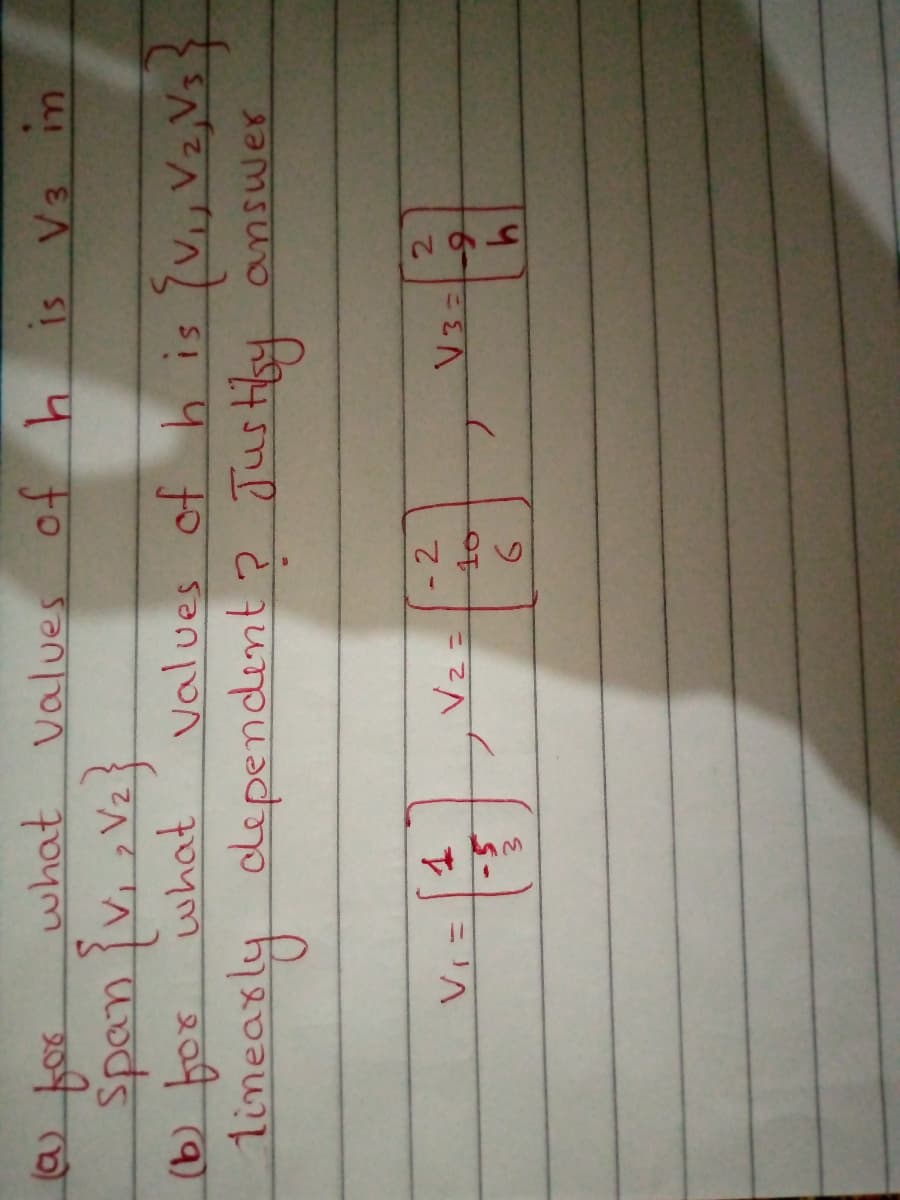 (a) for what values of h is V3 in
Span {V1, V2}
(b) for what values of h is {V1, V2, V3}
linearly dependent? Justify answer
V1 = [1 -5 3], V2 = [-2 10 6], V3 = [2 -9 h]